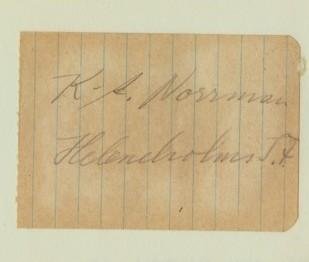 K-A. Norrman
Heleneholms I.F